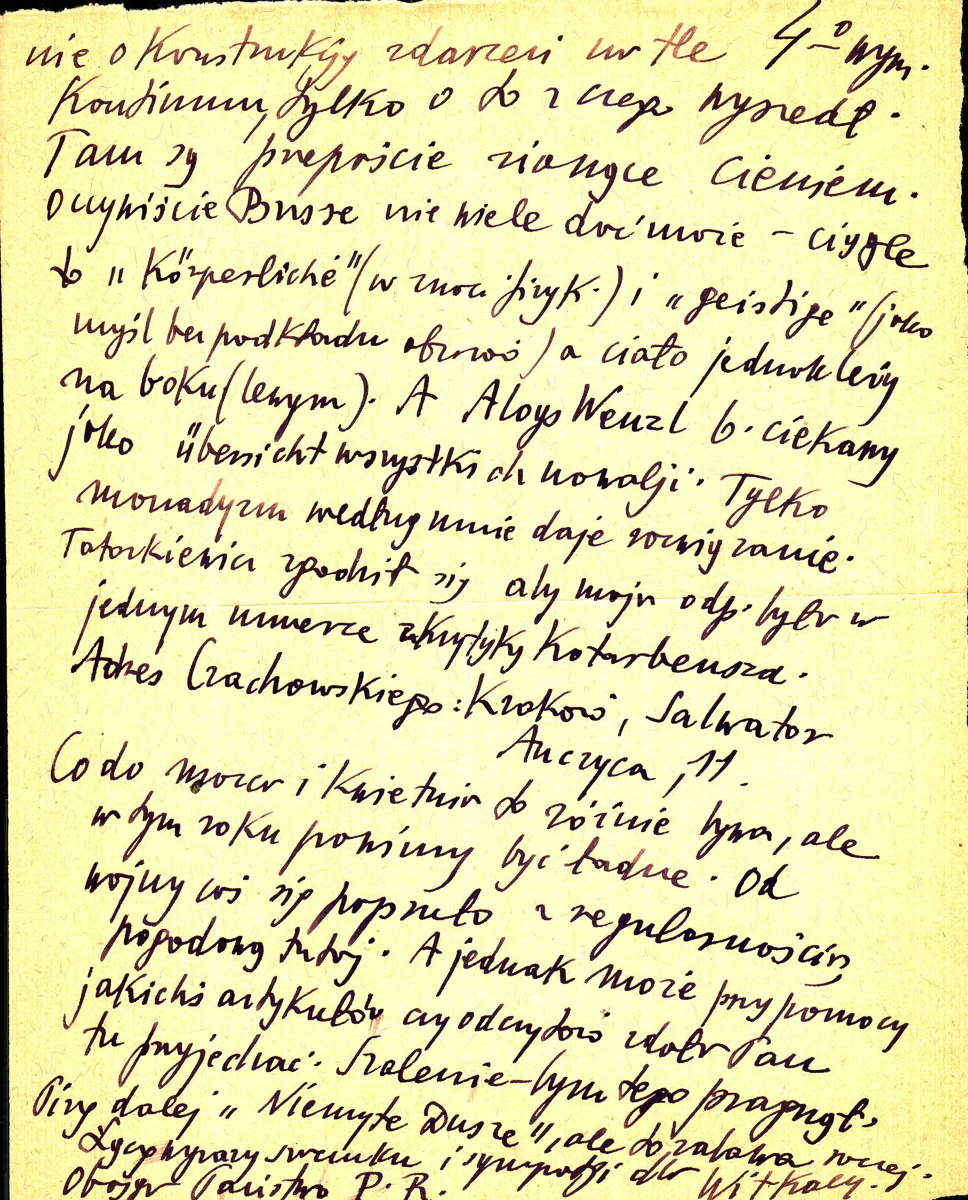 nie o konstrukcję zdarzeń w tle 4-o wym.
Kontinuum, tylko o to z czego wyszedł.
Tam są przepaście zionące cieniem.
Oczywiście Busse nie wiele doń może – ciągle
to „Körperliche" (w znacz. fizyk.) i „geistige" (jako
myśl bez podkładu obrazów) a ciało jednak leży
na boku (lewym). A Aloys Wenzl b. ciekawy
jako Übersicht wszystkich nowalji. Tylko
monadyzm według mnie daje rozwiązanie.
Tatarkiewicz zgodził się aby moja odp. była w
jednym numerze z krytyką Kotarbeusza.
Adres Czachowskiego: Kraków, Salwator
Anczyca, 11.
Co do marca i kwietnia to różnie bywa, ale
w tym roku powinny być ładne. Od
wojny coś się popsuło z regularnością
pogodową tutaj. A jednak może przy pomocy
jakichś artykułów czy odczytów zdoła Pan
tu przyjechać. Szalenie–bym tego pragnął,
Piszę dalej „Niemyte Dusze", ale to zabawa raczej.
Łączę wyrazy szacunku i sympatji dla
Obojga Państwa P. R. Witkacy.